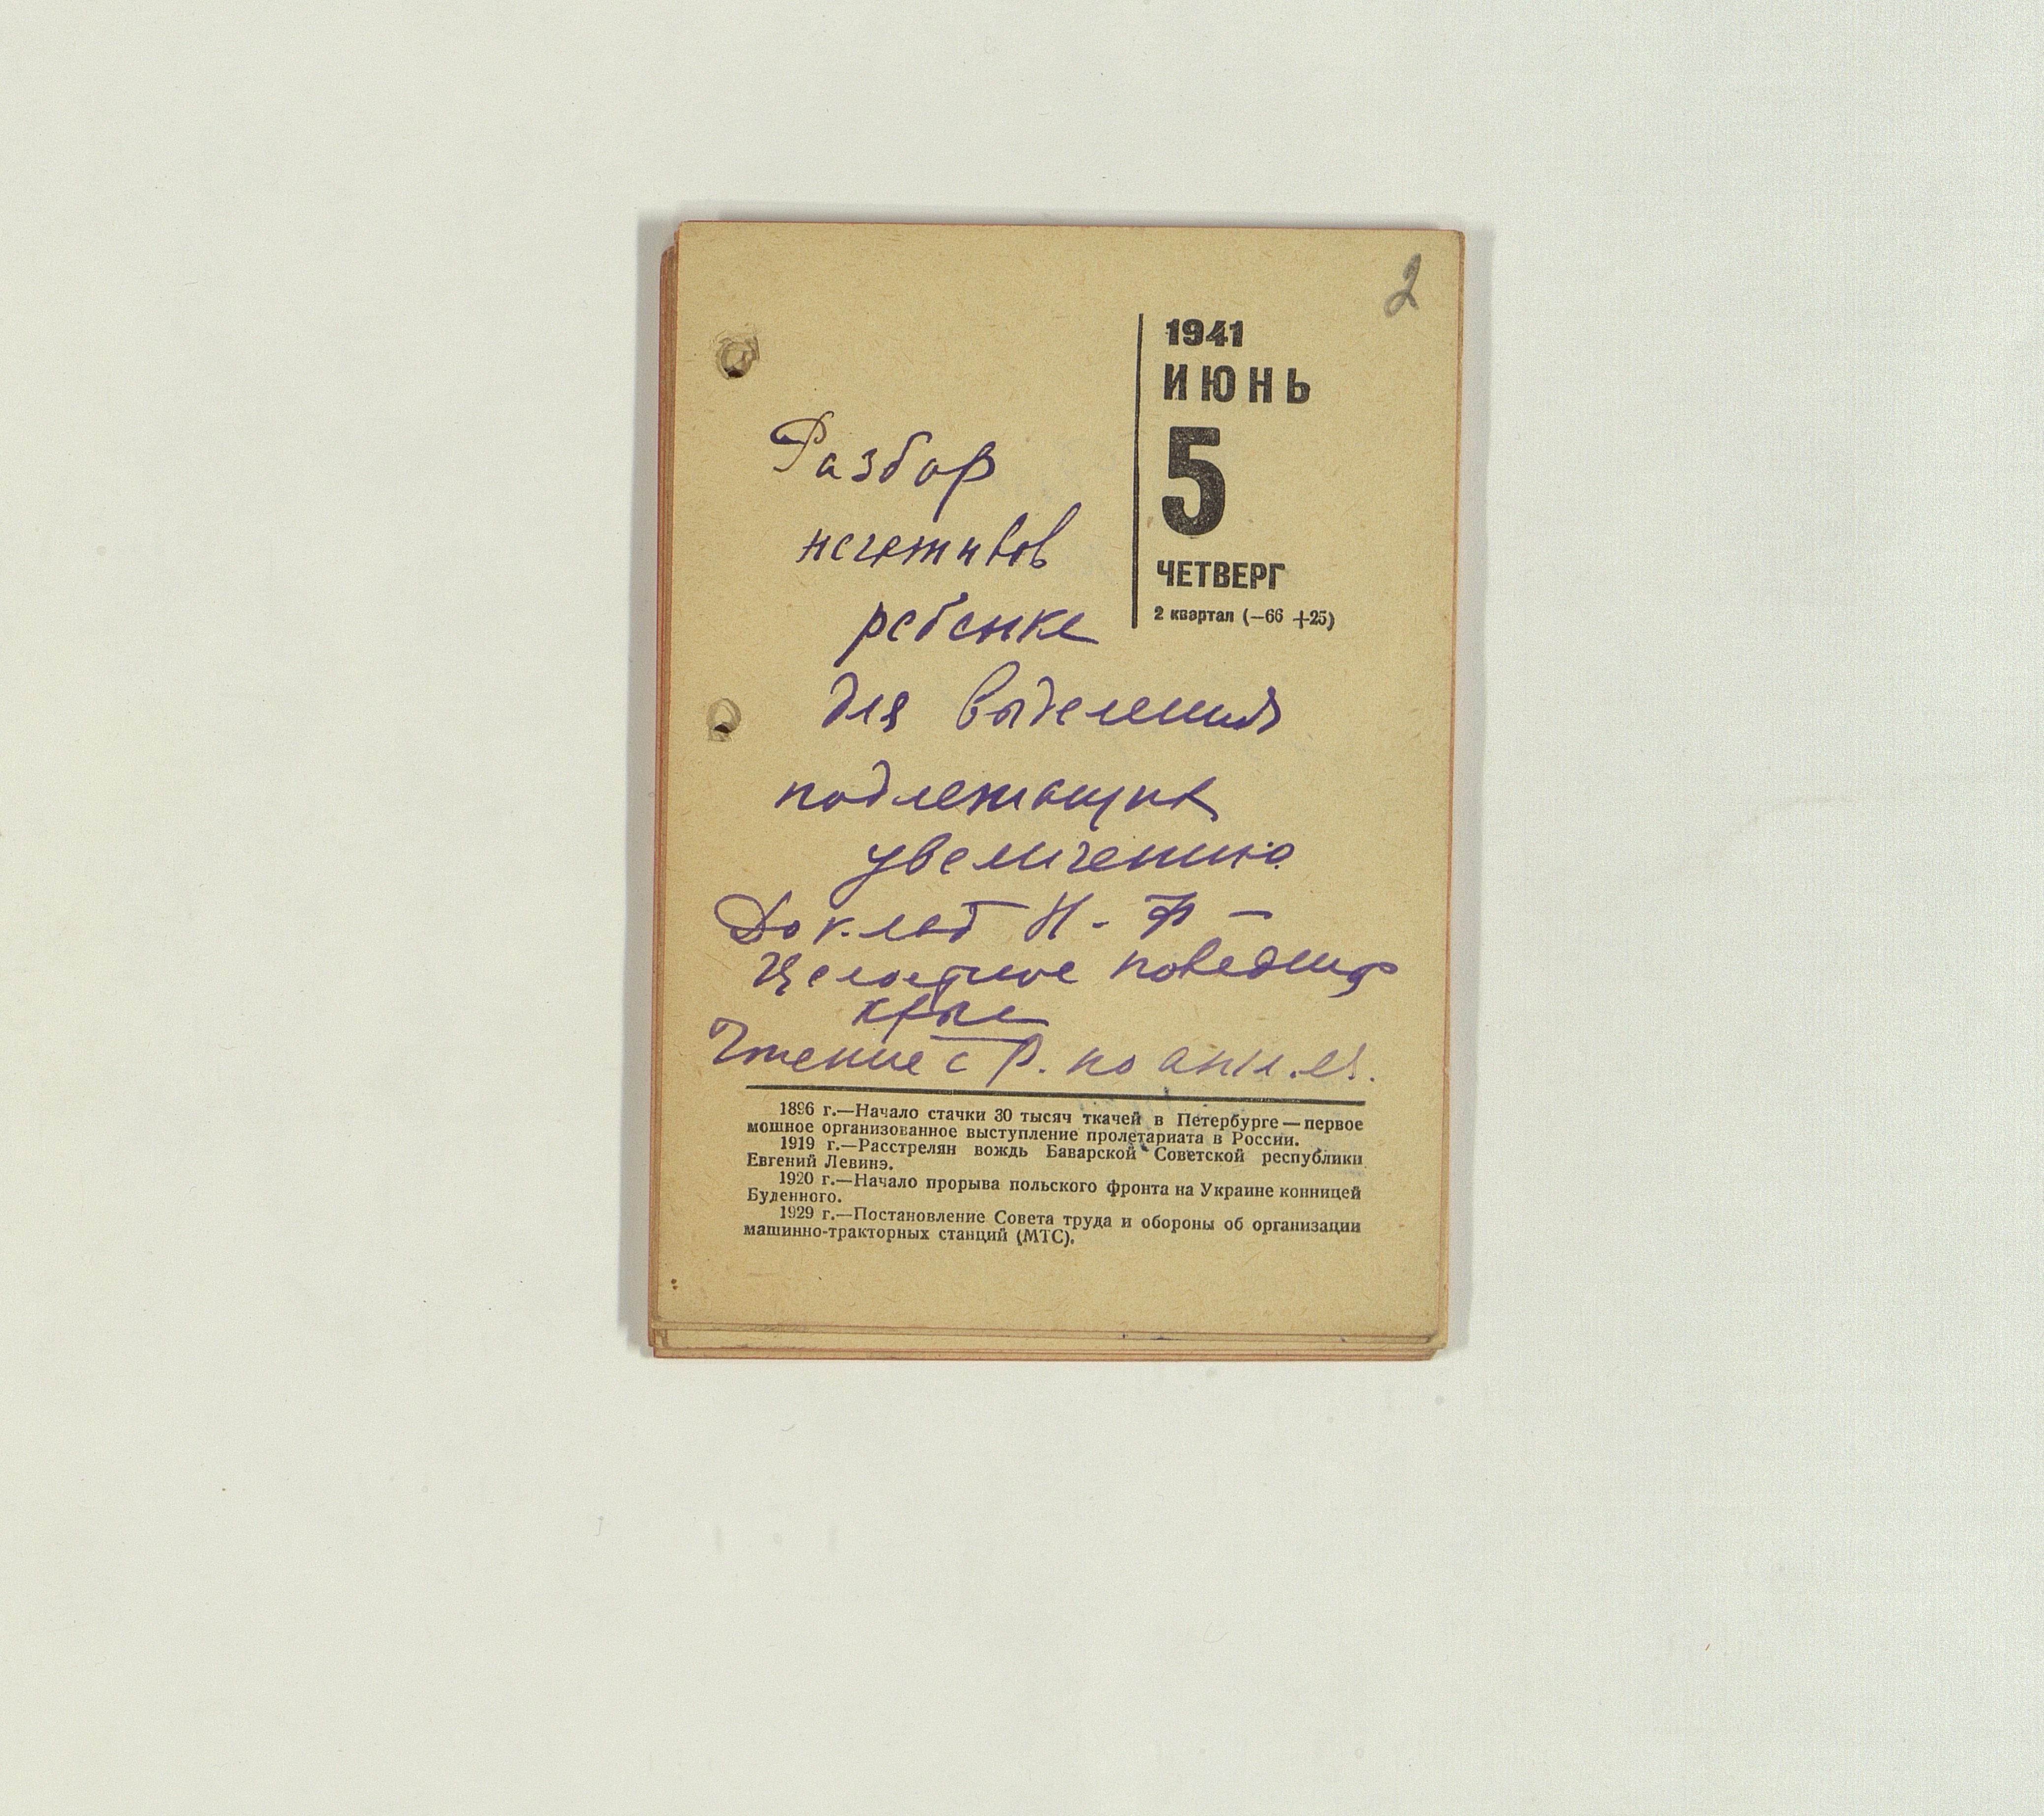 2
1941
ИЮНЬ
5
ЧЕТВЕРГ
2 квартал (—66 +25)
Разбор
негативов
ребенка
для выделения
подлежащих
увеличению.
Доклад Н. Ф —
Целостное поведение
крыс
Чтение с Р. по англ. яз.
1896 г.—Начало стачки 30 тысяч ткачей в Петербурге — первое
мощное организованное выступление пролетариата в России.
1919 г.—Расстрелян вождь Баварской Советской республики
Евгений Левинэ.
1920 г.—Начало прорыва польского фронта на Украине конницей
Буденного.
1929 г.—Постановление Совета труда и обороны об организации
машинно-тракторных станций (МТС).